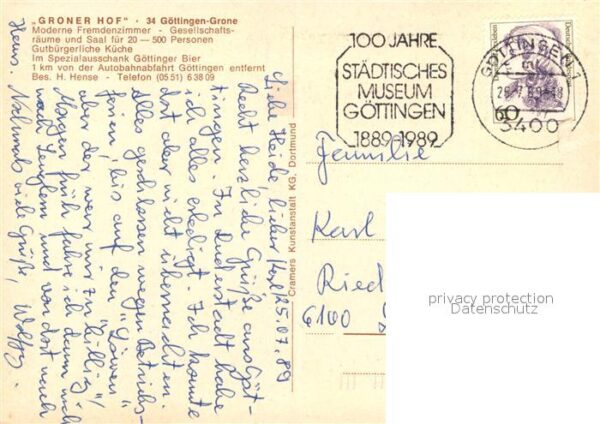 „GRONER HOF" · 34 Göttingen-Grone
Moderne Fremdenzimmer - Gesellschafts-
räume und Saal für 20 — 500 Personen
Gutbürgerliche Küche
Im Spezialausschank Göttinger Bier
1 km von der Autobahnabfahrt Göttingen entfernt
Bes. H. Hense - Telefon (05 51) 6 38 09
25.07.89
Liebe Heide, lieber Karl
Recht herzliche Grüße aus Göt-
tingen. In Duderstadt habe
ich alles erledigt. Ich konnte
dort aber nicht übernachten.
Alles geschlossen wegen Betriebs-
ferien, bis auf den "Löwen"
aber der war mir zu "billig"!
Morgen früh fahre ich dann
nach und von dort nach
Hann. Nochmals viele Grüße,
Cramers Kunstanstalt KG, Dortmund
100 JAHRE
STÄDTISCHES
MUSEUM
GÖTTINGEN
1889-1989
GÖTTINGEN 1
3400
60
Familie
Karl
Ried
6100
privacy protection
Datenschutz